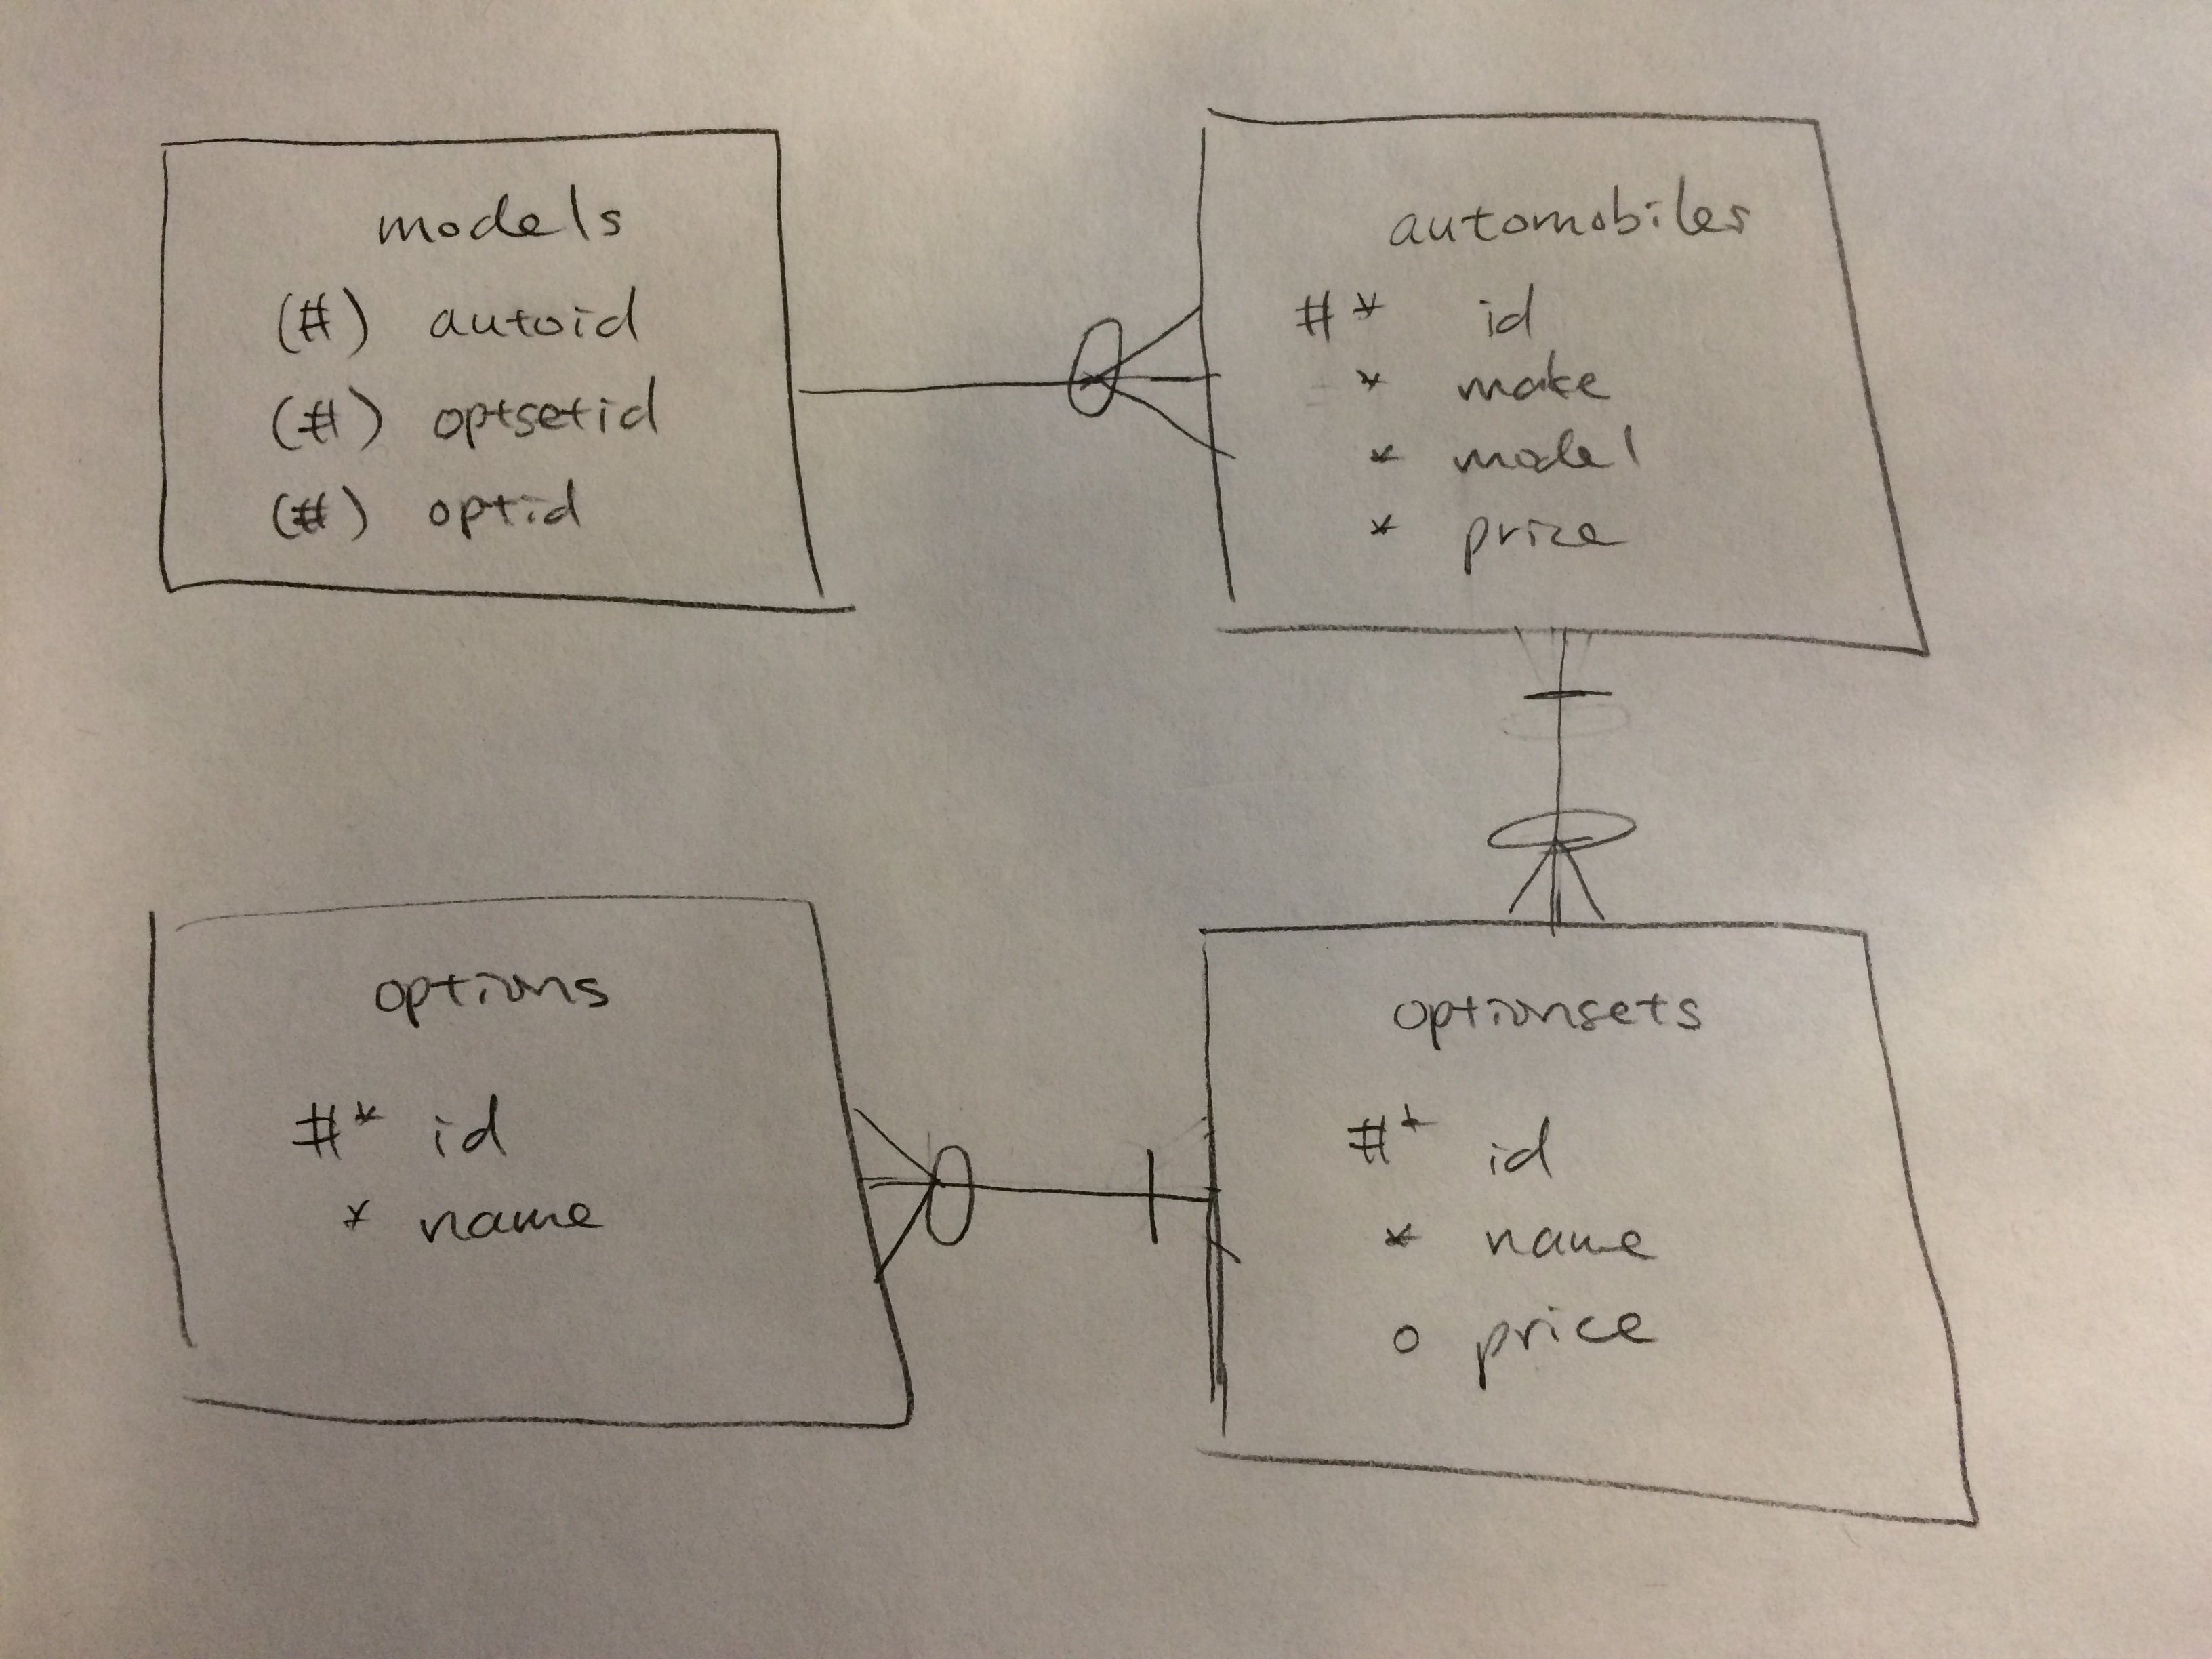 models
(#) autoid
(#) optsetid
(#) optid
automobiles
#* id
* make
* model
* price
options
#* id
* name
optionsets
#* id
* name
o price